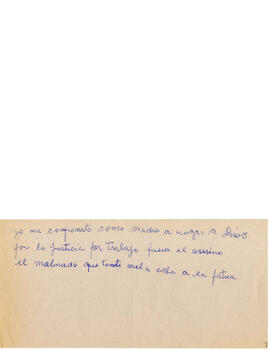 yo me comprometo como madre a rogar a Dios
por la justicia por trabajo fuera el asesino
el malvado que tanto mal a echo a la patria